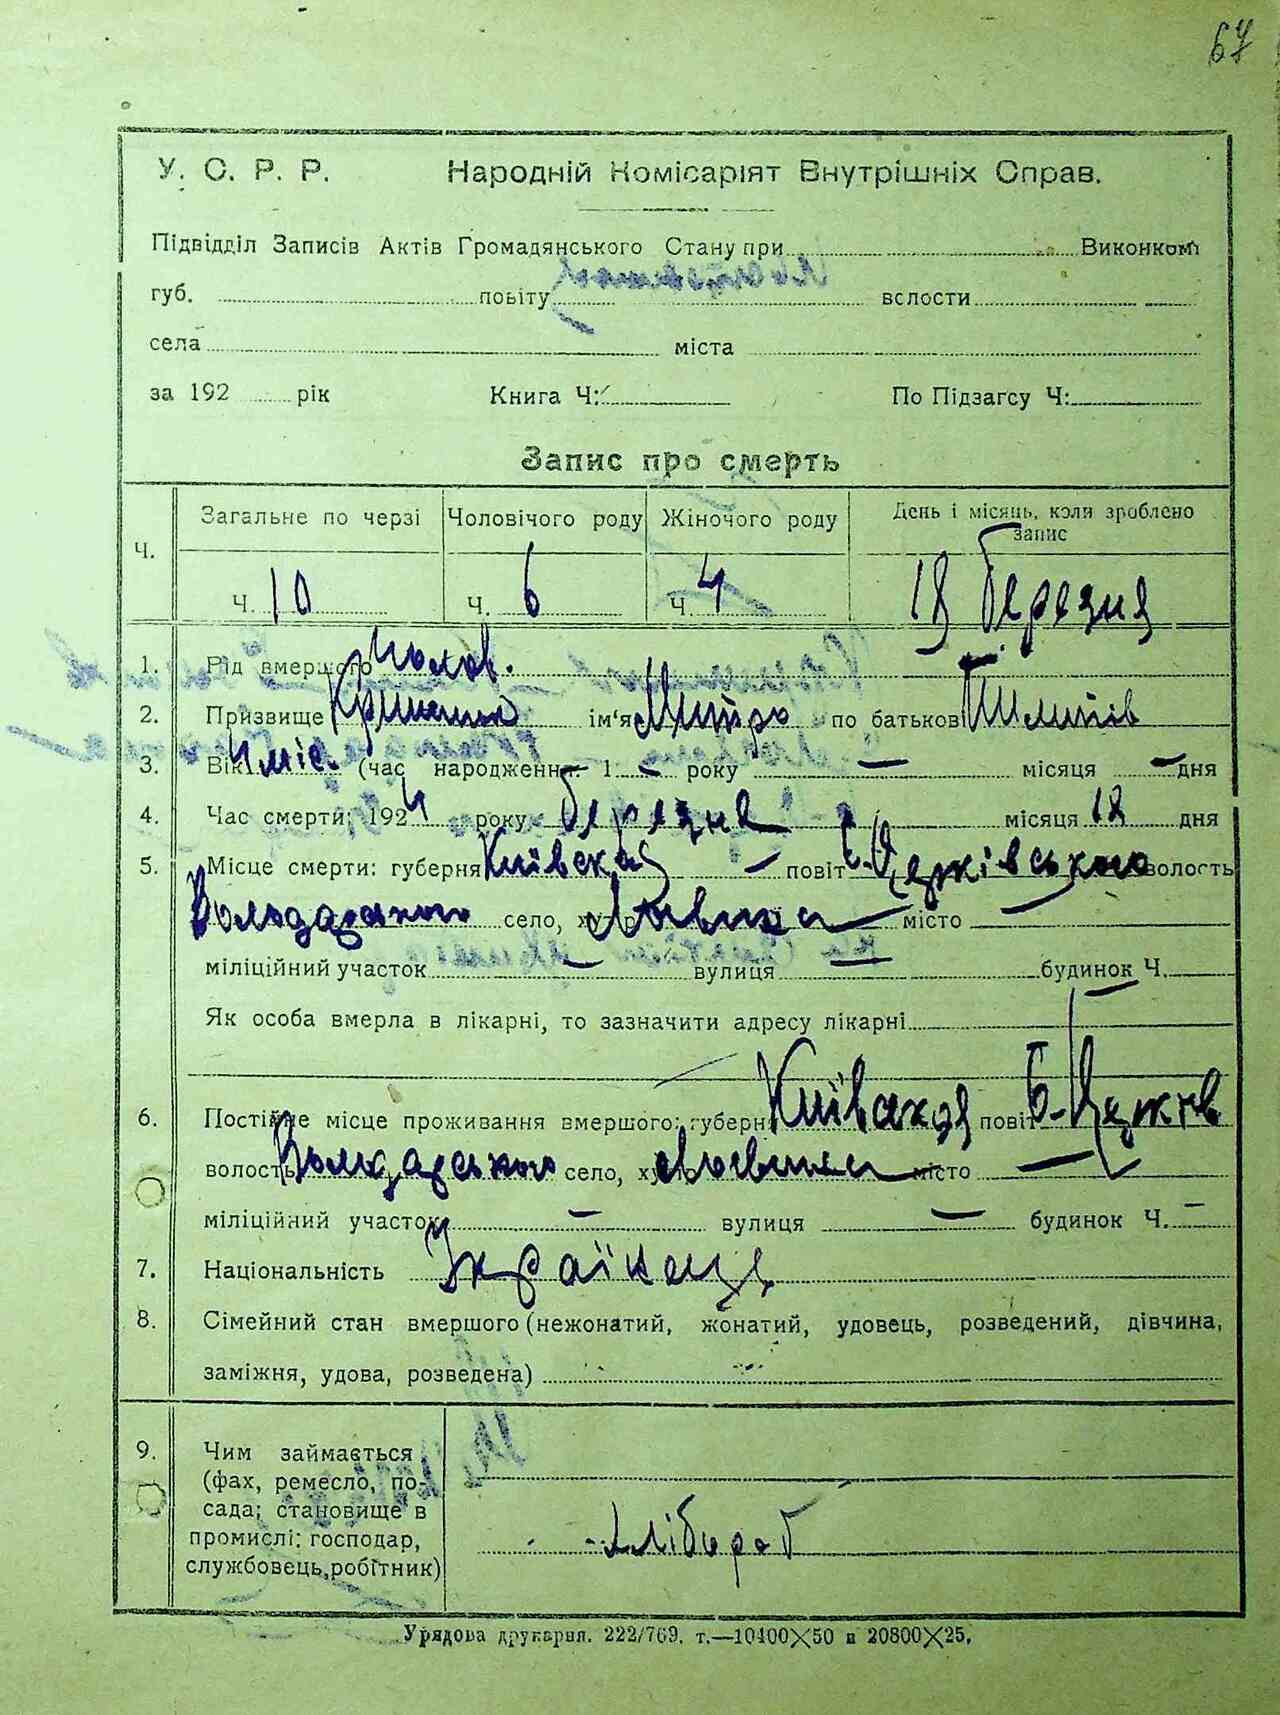 67
У. С. Р. Р. Народній Комісаріят Внутрішніх Справ.
Підвідділ Записів Актів Громадянського Стану при Виконкомі
губ. повіту волости
села міста
за 192 рік Книга Ч: По Підзагсу Ч:
Запис про смерть
Ч. Загальне по черзі Чоловічого роду Жіночого роду День і місяць, коли зроблено запис
Ч. 10 Ч. 6 Ч. 4 18 березня
1. Рід вмершого Чолов.
2. Призвище ім'я Митро по батькові Пилипів
3. Вік 4 міс. (час народження: 1 — року — місяця — дня
4. Час смерти: 1924 року березня місяця 18 дня
5. Місце смерти: губерня Київская повіт Б.Церківського волость
Володарського село, хут. Логвин місто —
міліційний участок — вулиця — будинок Ч. —
Як особа вмерла в лікарні, то зазначити адресу лікарні
6. Постійне місце проживання вмершого: губерн. Київская повіт Б-Церків
волость Володарського село, хут. Логвин місто —
міліційний участок — вулиця — будинок Ч. —
7. Національність Українець
8. Сімейний стан вмершого (нежонатий, жонатий, удовець, розведений, дівчина,
заміжня, удова, розведена)
9. Чим займається
(фах, ремесло, по-
сада; становище в
промислі: господар,
службовець, робітник)
хлібороб
Урядова друкарня. 222/769. т.—10400X50 и 20800X25.